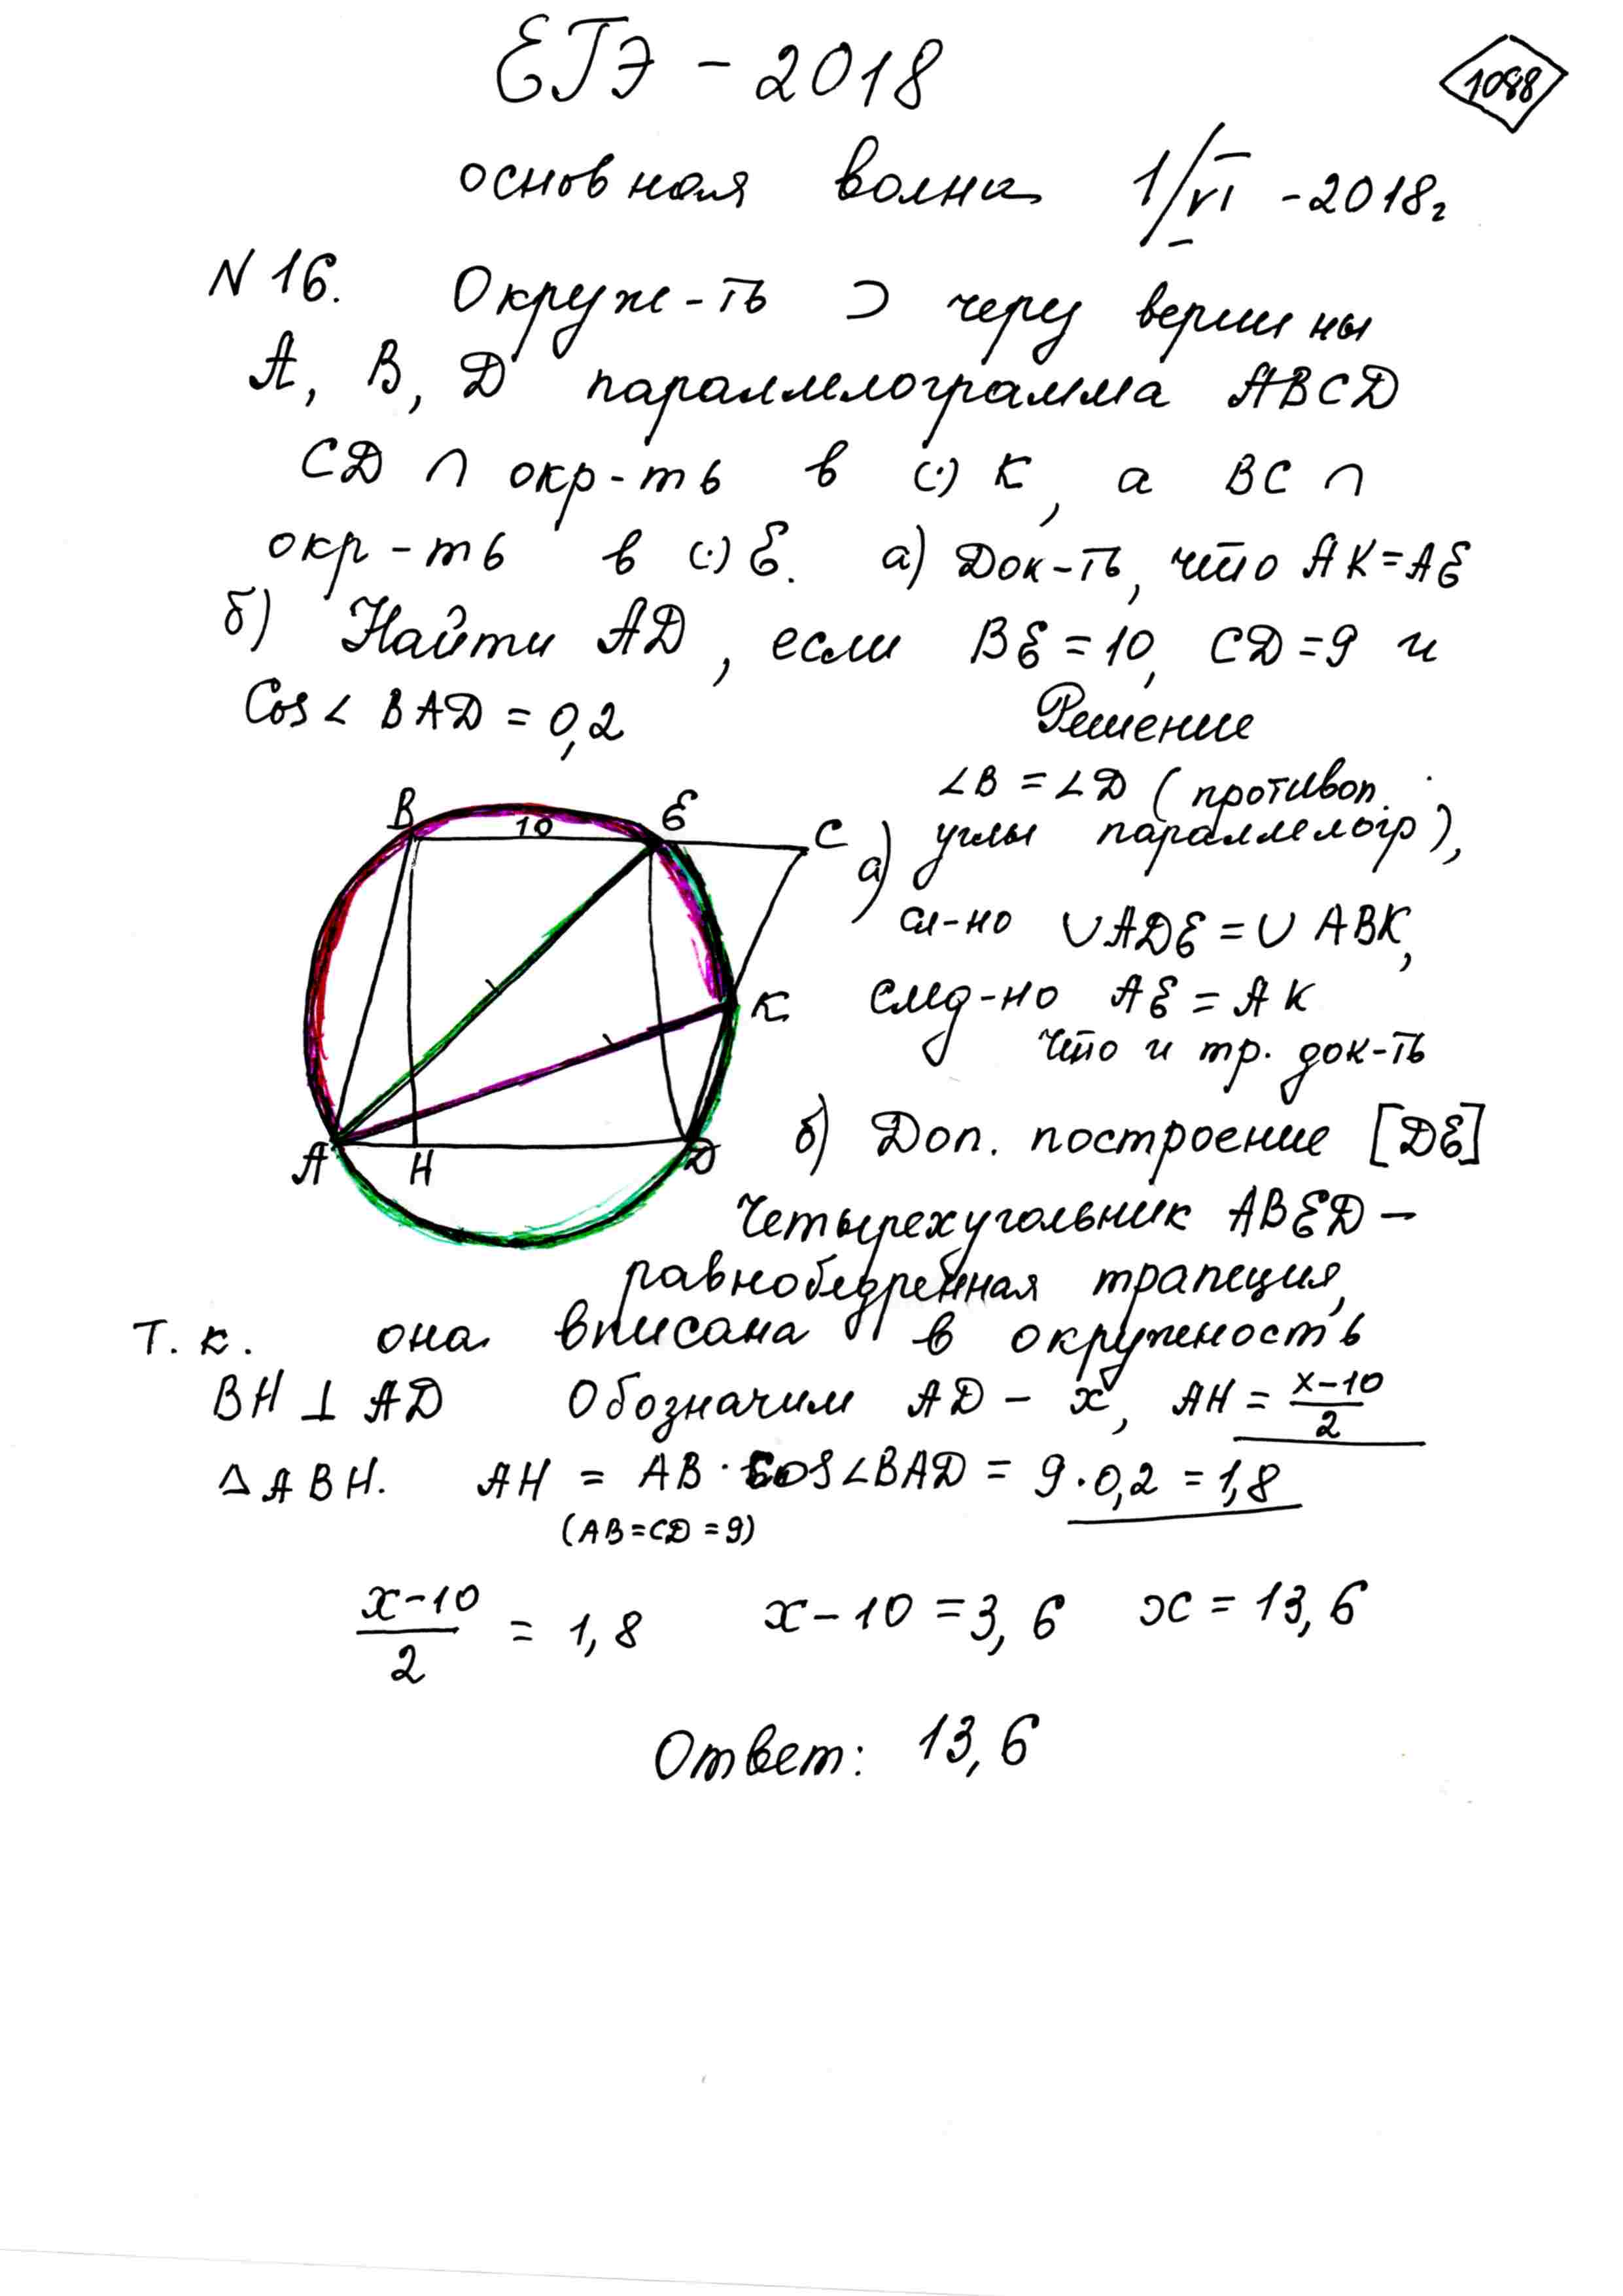 ЕГЭ - 2018
1088
основная волна 1/VI - 2018г
N 16. Окруж-ть ⊃ через вершины
А, В, D параллелограмма ABCD
CD ∩ окр-ть в (·) К, а ВС ∩
окр-ть в (·) Е. а) Док-ть, что АК=АЕ
б) Найти AD, если ВЕ = 10, CD = 9 и
Cos∠ BAD = 0,2 Решение
∠B = ∠D (противоп.
углы параллелогр),
а)
сл-но ∪ADE = ∪ ABK,
след-но АЕ = АК
что и тр. док-ть
В 10 Е С
К
А Н D
б) Доп. построение [DE]
Четырехугольник ABED –
равнобедренная трапеция,
т. к. она вписана в окружность
BH ⊥ AD Обозначим AD – x, AH = x-10/2
△ABH. AH = AB · cos∠BAD = 9·0,2 = 1,8
(AB=CD=9)
x-10/2 = 1,8 x-10 = 3,6 x = 13,6
Ответ: 13,6